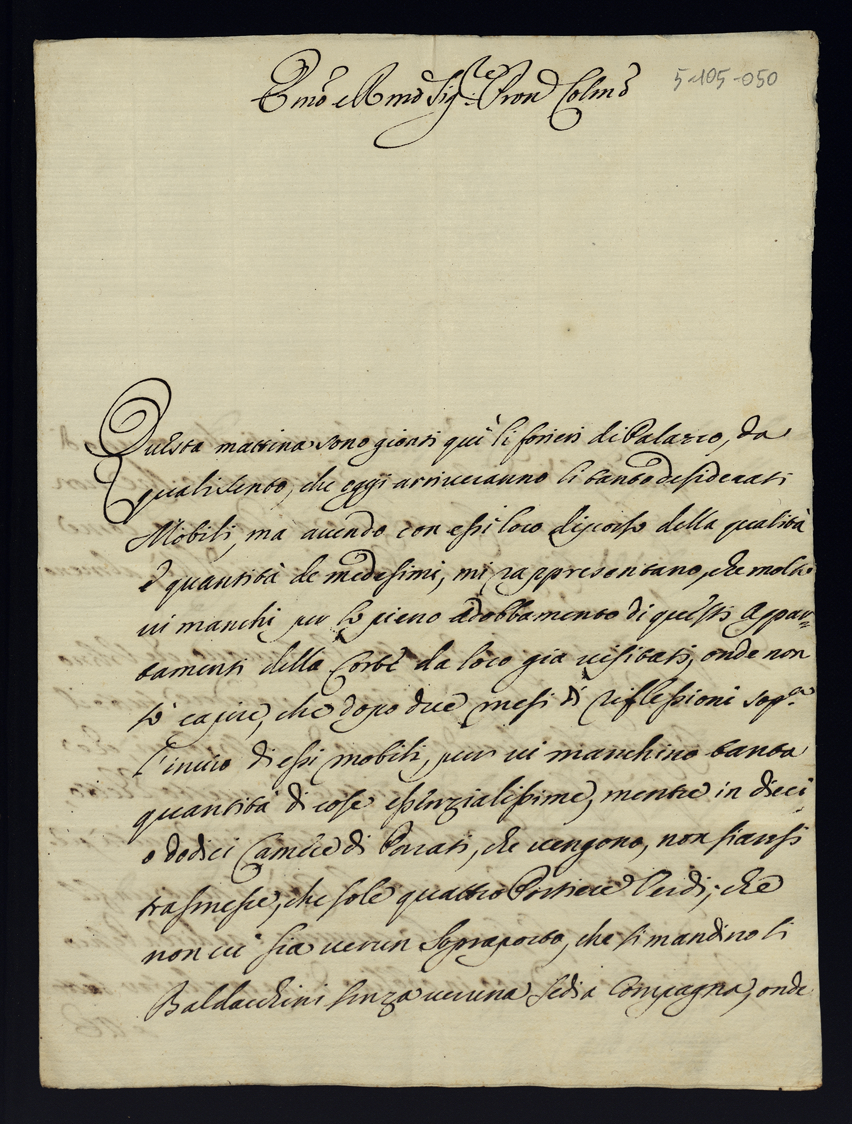 Emo e Rmo Sigre Pron Colmo
5-105-050
Questa mattina sono gionti qui li forieri di Palazzo, da
quali sento, che oggi arriveranno li tanto desiderati
Mobili, ma avendo con essi loro discorso della qualità
e quantità de medesimi, mi rappresentano, che molto
vi manchi per lo pieno adobbamento di questi Appar=
tamenti della Corte da loro gia visitati, onde non
sò capire, che dopo due mesi di riflessioni sopra
l'invio di essi mobili, pur vi manchino tanta
quantità di cose essenzialissime, mentre in dieci
o dodici Camere di Parati, che vengono, non siansi
trasmesse, che sole quattro Portiere Verdi; che
non vi sia verun Sopraporto, che si mandino li
Baldacchini senza veruna Sedia Compagna, onde